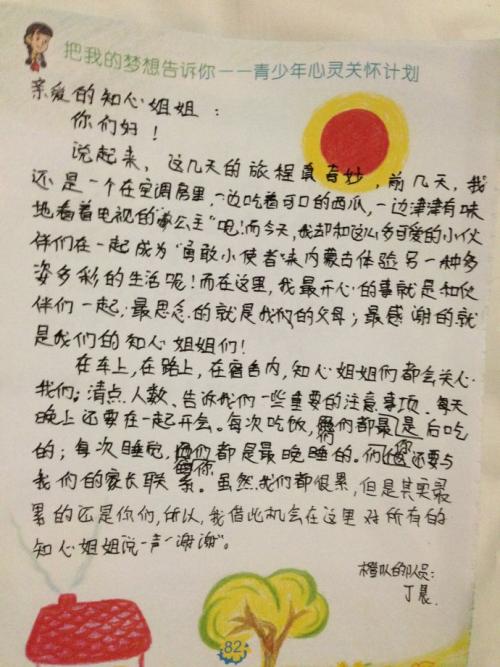 把我的梦想告诉你——青少年心灵关怀计划
亲爱的知心姐姐：
你们好！
说起来，这几天的旅程真奇妙，前几天，我
还是一个在空调房里，一边吃着可口的西瓜，一边津津有味
地看着电视的"小公主"呢！而今天，我却和这么多可爱的小伙
伴们在一起成为"勇敢小使者"来内蒙古体验另一种多
姿多彩的生活呢！而在这里，我最开心的事就是和伙
伴们一起；最思念的就是我们的父母；最感谢的就
是我们的知心姐姐们！
在车上，在路上，在宿舍内，知心姐姐们都会关心
我们：清点人数、告诉我们一些重要的注意事项、每天
晚上还要在一起开会。每次吃饭，你们都是最后吃
的；每次睡觉，你们都是最晚睡的。你们还要与
我们的家长联系。虽然我们都很累，但是其实最
累的还是你们，所以，我借此机会在这里对所有的
知心姐姐说一声"谢谢"。
橙队的队员：
丁晨
82